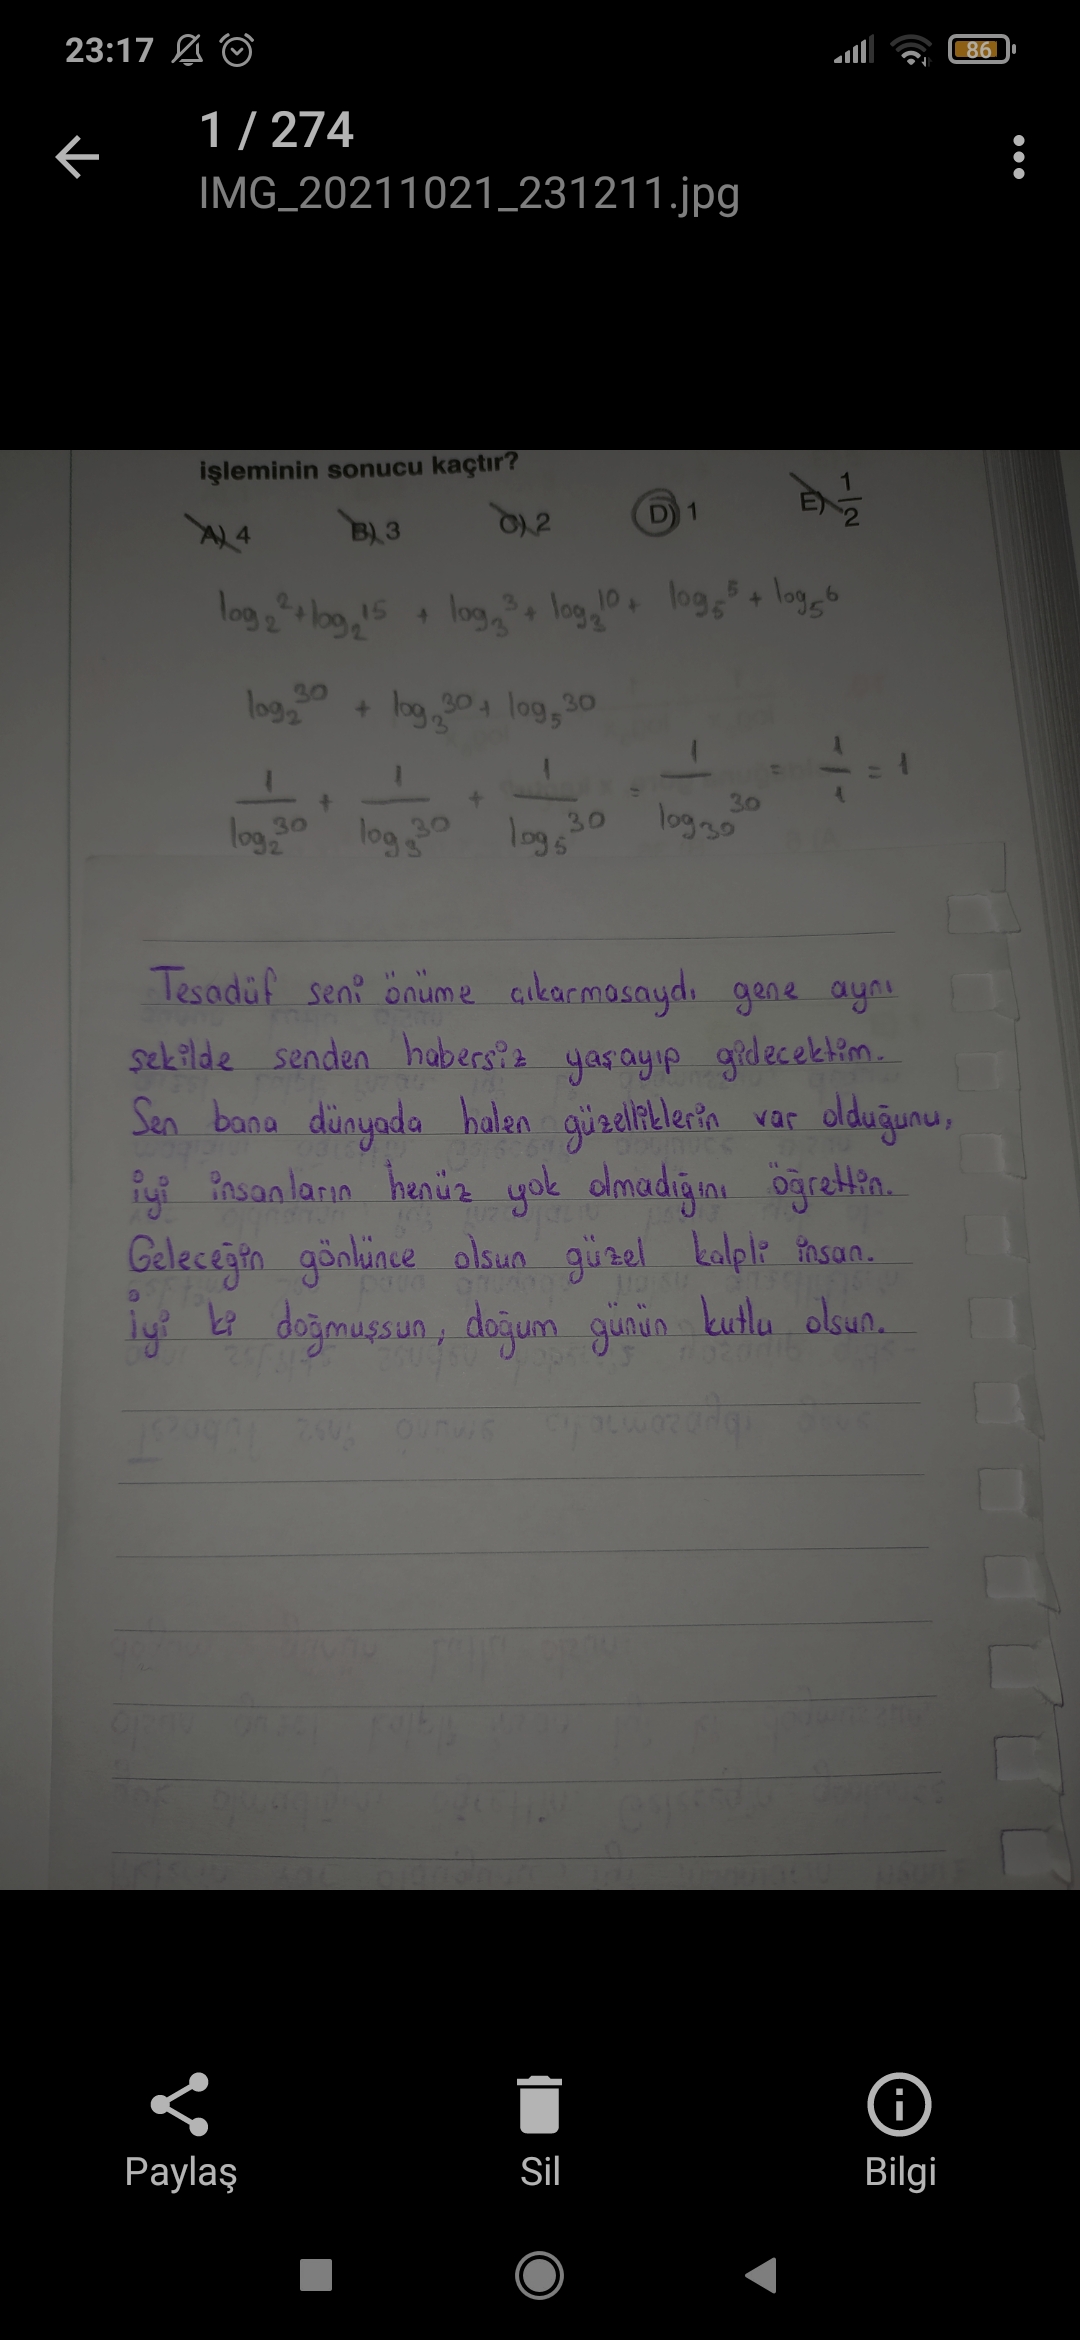 23:17 86
1 / 274
IMG_20211021_231211.jpg
işleminin sonucu kaçtır?
A) 4 B) 3 C) 2 D) 1 E) 1/2
log₂2 + log₂15 + log₃3 + log₃10 + log₅5 + log₅6
log₂30 + log₃30 + log₅30
1/log₂30 + 1/log₃30 + 1/log₅30 = 1/log₃₀30 = 1/1 = 1
Tesadüf seni önüme çıkarmasaydı gene aynı
şekilde senden habersiz yaşayıp gidecektim.
Sen bana dünyada halen güzelliklerin var olduğunu,
iyi insanların henüz yok olmadığını öğrettin.
Geleceğin gönlünce olsun güzel kalpli insan.
İyi ki doğmuşsun, doğum günün kutlu olsun.
Paylaş Sil Bilgi